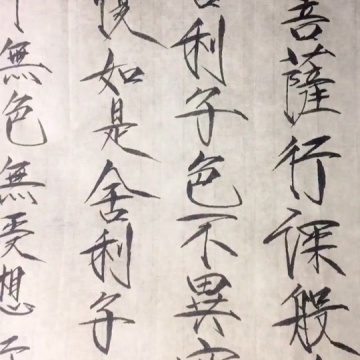 菩薩行深般
舍利子色不異
如是舍利子
無色無受想